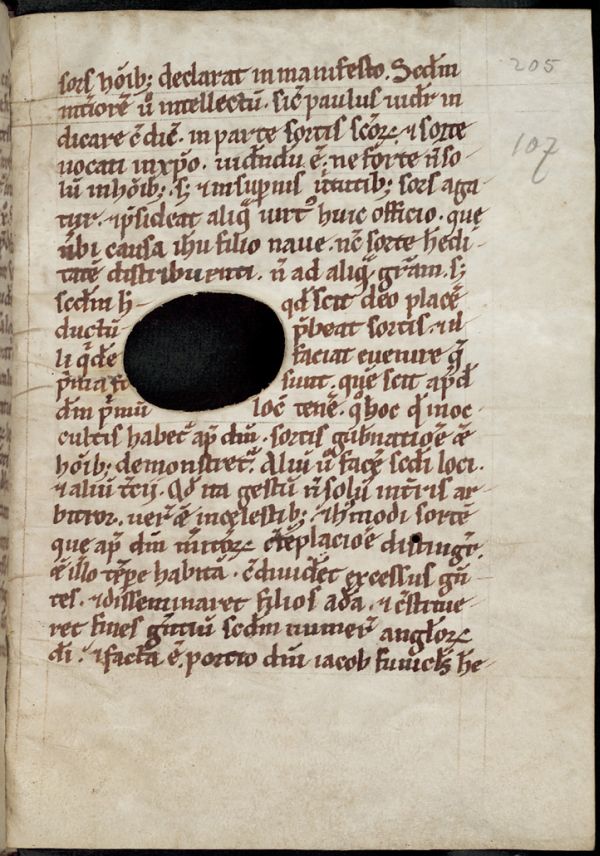 205
107
sors hōib; declarat in manifesto. Scdm
intiorē ů intellectū. sic̄ paulus uidr̄ in
dicare c̄ dic̄. in parte sortis scōꝝ. ⁊ sorte
uocati in xp̄o. uidndū ē; ne forte n̄ so
lū in hōib; s; ⁊ in supnis ututib; sors aga
tur. ⁊ p̄sideat aliq̄ uirtꝰ huic officio. que
ubi causa ihu filio naue. nc̄ sorte hedi-
tatē distribuenti. n̄ ad aliq̄ grām. s;
scdm h- qd̄ scit deo placē
ductū p̄beat sortis. ⁊ il
li q̄de faciat euenire q̄
p̄ma sunt. que scit ap̄d
dm̄ p̄mū locū tenē. q̄ hoc qd̄ in oc
cultis habet᷑ ap̄ dm̄. sortis gub̄natiōe ēē
hōib; demonstret᷑. Aliū ů facē scdi loci.
⁊ aliū tc̄ij. Qd̄ ita gestū n̄ solū in tr̄is ar
bitror. uer̄ ⁊ in celestib; ⁊ hi᷑modi sortē
que ap̄ dm̄ mitoꝝ c̄tēplaciōe distingr̄.
ē illo tēpe habitā. c̄ diuidet excessus gn̄
tes. ⁊ disseminaret filios adā. ⁊ c̄stitue
ret fines gn̄tiū scdm numer̄ angloꝝ
di. ⁊ facta ē. portio dn̄i iacob funiclꝰ he